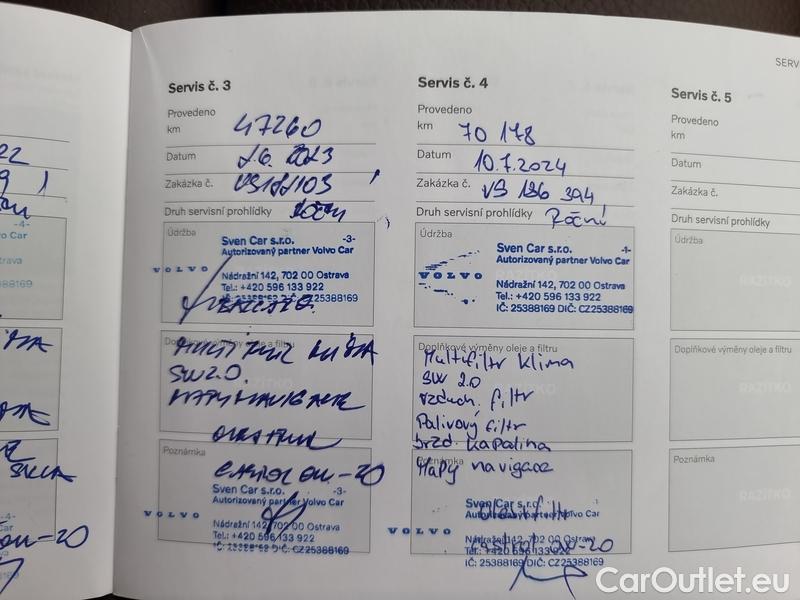 SERV
Servis č. 3
Provedeno
km 47260
Datum 2.6. 2023
Zakázka č. VS181103
Druh servisní prohlídky Roční
Údržba
Sven Car s.r.o. -3-
Autorizovaný partner Volvo Car
VOLVO
Nádražní 142, 702 00 Ostrava
Tel.: +420 596 133 922
IČ: 25388169 DIČ: CZ25388169
Doplňkové výměny oleje a filtru
SW 2.0.
RAZÍTKO
Poznámka
CASTROL OW-20
Sven Car s.r.o. -3-
Autorizovaný partner Volvo Car
VOLVO
Nádražní 142, 702 00 Ostrava
Tel.: +420 596 133 922
IČ: 25388169 DIČ: CZ25388169
Servis č. 4
Provedeno
km 70 178
Datum 10.7.2024
Zakázka č. VS 186 394
Druh servisní prohlídky Roční
Údržba
Sven Car s.r.o. -1-
Autorizovaný partner Volvo Car
VOLVO
RAZÍTKO
Nádražní 142, 702 00 Ostrava
Tel.: +420 596 133 922
IČ: 25388169 DIČ: CZ25388169
Doplňkové výměny oleje a filtru
Multifiltr klima
SW 2.0
vzduch. filtr
RAZÍTKO
Palivový filtr
brzd. kapalina
Poznámka
Mapy navigace
Sven Car s.r.o.
Autorizovaný partner Volvo Car
VOLVO
Nádražní 142, 702 00 Ostrava
Castrol OW-20
Tel.: +420 596 133 922
IČ: 25388169 DIČ: CZ25388169
Servis č. 5
Provedeno
km
Datum
Zakázka č.
Druh servisní prohlídky
Údržba
RAZÍTKO
Doplňkové výměny oleje a filtru
RAZÍTKO
Poznámka
RAZÍTKO
CarOutlet.eu